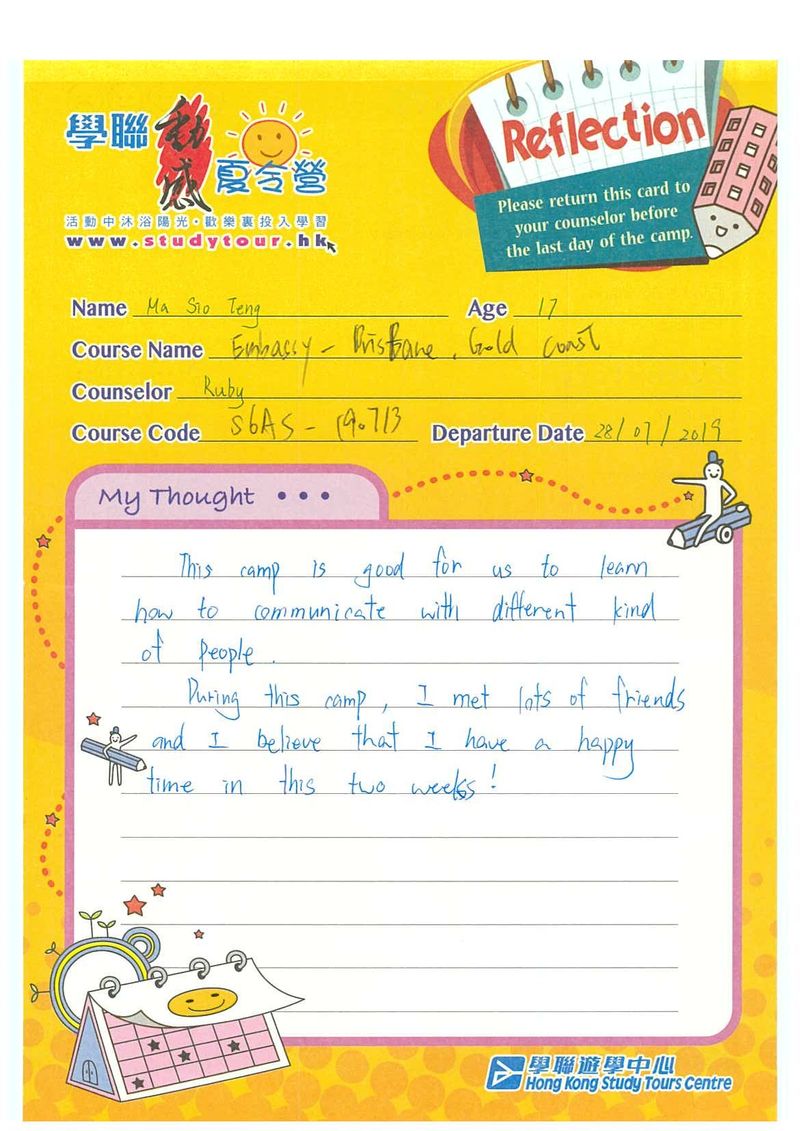 學聯 動感 夏令營
活動中沐浴陽光•歡樂裏投入學習
www.studytour.hk
Reflection
Please return this card to
your counselor before
the last day of the camp.
Name Ma Sio Teng Age 17
Course Name Embassy - Brisbane, Gold coast
Counselor Ruby
Course Code S6AS - 190713 Departure Date 28/07/2019
My Thought •••
This camp is good for us to learn
how to communicate with different kind
of people.
During this camp, I met lots of friends
and I believe that I have a happy
time in this two weeks!
學聯遊學中心
Hong Kong Study Tours Centre